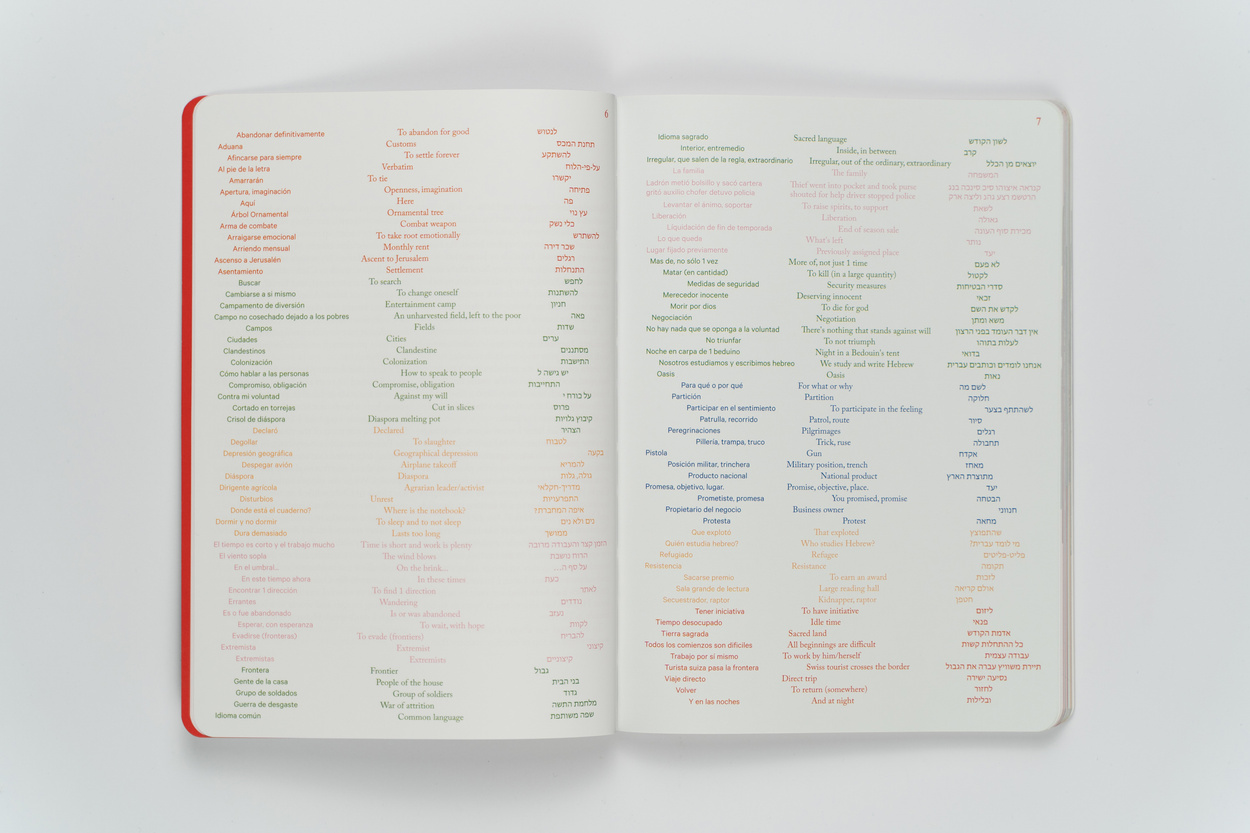 6
Abandonar definitivamente To abandon for good לנטוש
Aduana Customs תחנת המכס
Afincarse para siempre To settle forever להשתקע
Al pie de la letra Verbatim על-פי-הלוח
Amarrarán To tie יקשרו
Apertura, imaginación Openness, imagination פתיחה
Aquí Here פה
Árbol Ornamental Ornamental tree עץ נוי
Arma de combate Combat weapon כלי נשק
Arraigarse emocional To take root emotionally להשתרש
Arriendo mensual Monthly rent שכר דירה
Ascenso a Jerusalén Ascent to Jerusalem רגלים
Asentamiento Settlement התנחלות
Buscar To search לחפש
Cambiarse a si mismo To change oneself להשתנות
Campamento de diversión Entertainment camp חניון
Campo no cosechado dejado a los pobres An unharvested field, left to the poor פאה
Campos Fields שדות
Ciudades Cities ערים
Clandestinos Clandestine מסתננים
Colonización Colonization התישבות
Cómo hablar a las personas How to speak to people יש גישה ל
Compromiso, obligación Compromise, obligation התחייבות
Contra mi voluntad Against my will על כורחי
Cortado en torrejas Cut in slices פרוס
Crisol de diáspora Diaspora melting pot קיבוץ גלויות
Declaró Declared הצהיר
Degollar To slaughter לטבוח
Depresión geográfica Geographical depression בקעה
Despegar avión Airplane takeoff להמריא
Diáspora Diaspora גולה, גלות
Dirigente agrícola Agrarian leader/activist מדריך-חקלאי
Disturbios Unrest התפרעויות
Donde está el cuaderno? Where is the notebook? איפה המחברת?
Dormir y no dormir To sleep and to not sleep נים ולא נים
Dura demasiado Lasts too long ממושך
El tiempo es corto y el trabajo mucho Time is short and work is plenty הזמן קצר והעבודה מרובה
El viento sopla The wind blows הרוח נושבת
En el umbral... On the brink... על סף ה...
En este tiempo ahora In these times כעת
Encontrar 1 dirección To find 1 direction לאתר
Errantes Wandering נודדים
Es o fue abandonado Is or was abandoned נעזב
Esperar, con esperanza To wait, with hope לקוות
Evadirse (fronteras) To evade (frontiers) להבריח
Extremista Extremist קיצוני
Extremistas Extremists קיצוניים
Frontera Frontier גבול
Gente de la casa People of the house בני הבית
Grupo de soldados Group of soldiers גדוד
Guerra de desgaste War of attrition מלחמת התשה
Idioma común Common language שפה משותפת
7
Idioma sagrado Sacred language לשון הקודש
Interior, entremedio Inside, in between קרב
Irregular, que salen de la regla, extraordinario Irregular, out of the ordinary, extraordinary יוצאים מן הכלל
La familia The family המשפחה
Ladrón metió bolsillo y sacó cartera Thief went into pocket and took purse
gritó auxilio chofer detuvo policía shouted for help driver stopped police
Levantar el ánimo, soportar To raise spirits, to support לשאת
Liberación Liberation גאולה
Liquidación de fin de temporada End of season sale מכירת סוף העונה
Lo que queda What's left נותר
Lugar fijado previamente Previously assigned place יעד
Mas de, no sólo 1 vez More of, not just 1 time לא פעם
Matar (en cantidad) To kill (in a large quantity) לקטול
Medidas de seguridad Security measures סדרי הבטיחות
Merecedor inocente Deserving innocent זכאי
Morir por dios To die for god לקדש את השם
Negociación Negotiation משא ומתן
No hay nada que se oponga a la voluntad There's nothing that stands against will אין דבר העומד בפני הרצון
No triunfar To not triumph לעלות בתוהו
Noche en carpa de 1 beduino Night in a Bedouin's tent בדואי
Nosotros estudiamos y escribimos hebreo We study and write Hebrew אנחנו לומדים וכותבים עברית
Oasis Oasis נאות
Para qué o por qué For what or why לשם מה
Partición Partition חלוקה
Participar en el sentimiento To participate in the feeling לשהתתף בצער
Patrulla, recorrido Patrol, route סיור
Peregrinaciones Pilgrimages רגלים
Pillería, trampa, truco Trick, ruse תחבולה
Pistola Gun אקדח
Posición militar, trinchera Military position, trench מאחז
Producto nacional National product מתוצרת הארץ
Promesa, objetivo, lugar. Promise, objective, place. יעד
Prometiste, promesa You promised, promise הבטחה
Propietario del negocio Business owner חנווני
Protesta Protest מחאה
Que explotó That exploded שהתפוצץ
Quien estudia hebreo? Who studies Hebrew? מי לומד עברית?
Refugiado Refugee פליט-פליטים
Resistencia Resistance תקומה
Sacarse premio To earn an award לזכות
Sala grande de lectura Large reading hall אולם קריאה
Secuestrador, raptor Kidnapper, raptor חטפן
Tener iniciativa To have initiative ליזום
Tiempo desocupado Idle time פנאי
Tierra sagrada Sacred land אדמת הקודש
Todos los comienzos son dificiles All beginnings are difficult כל ההתחלות קשות
Trabajo por si mismo To work by him/herself עבודה עצמית
Turista suiza pasa la frontera Swiss tourist crosses the border תיירת משוויץ עברה את הגבול
Viaje directo Direct trip נסיעה ישירה
Volver To return (somewhere) לחזור
Y en las noches And at night ובלילות